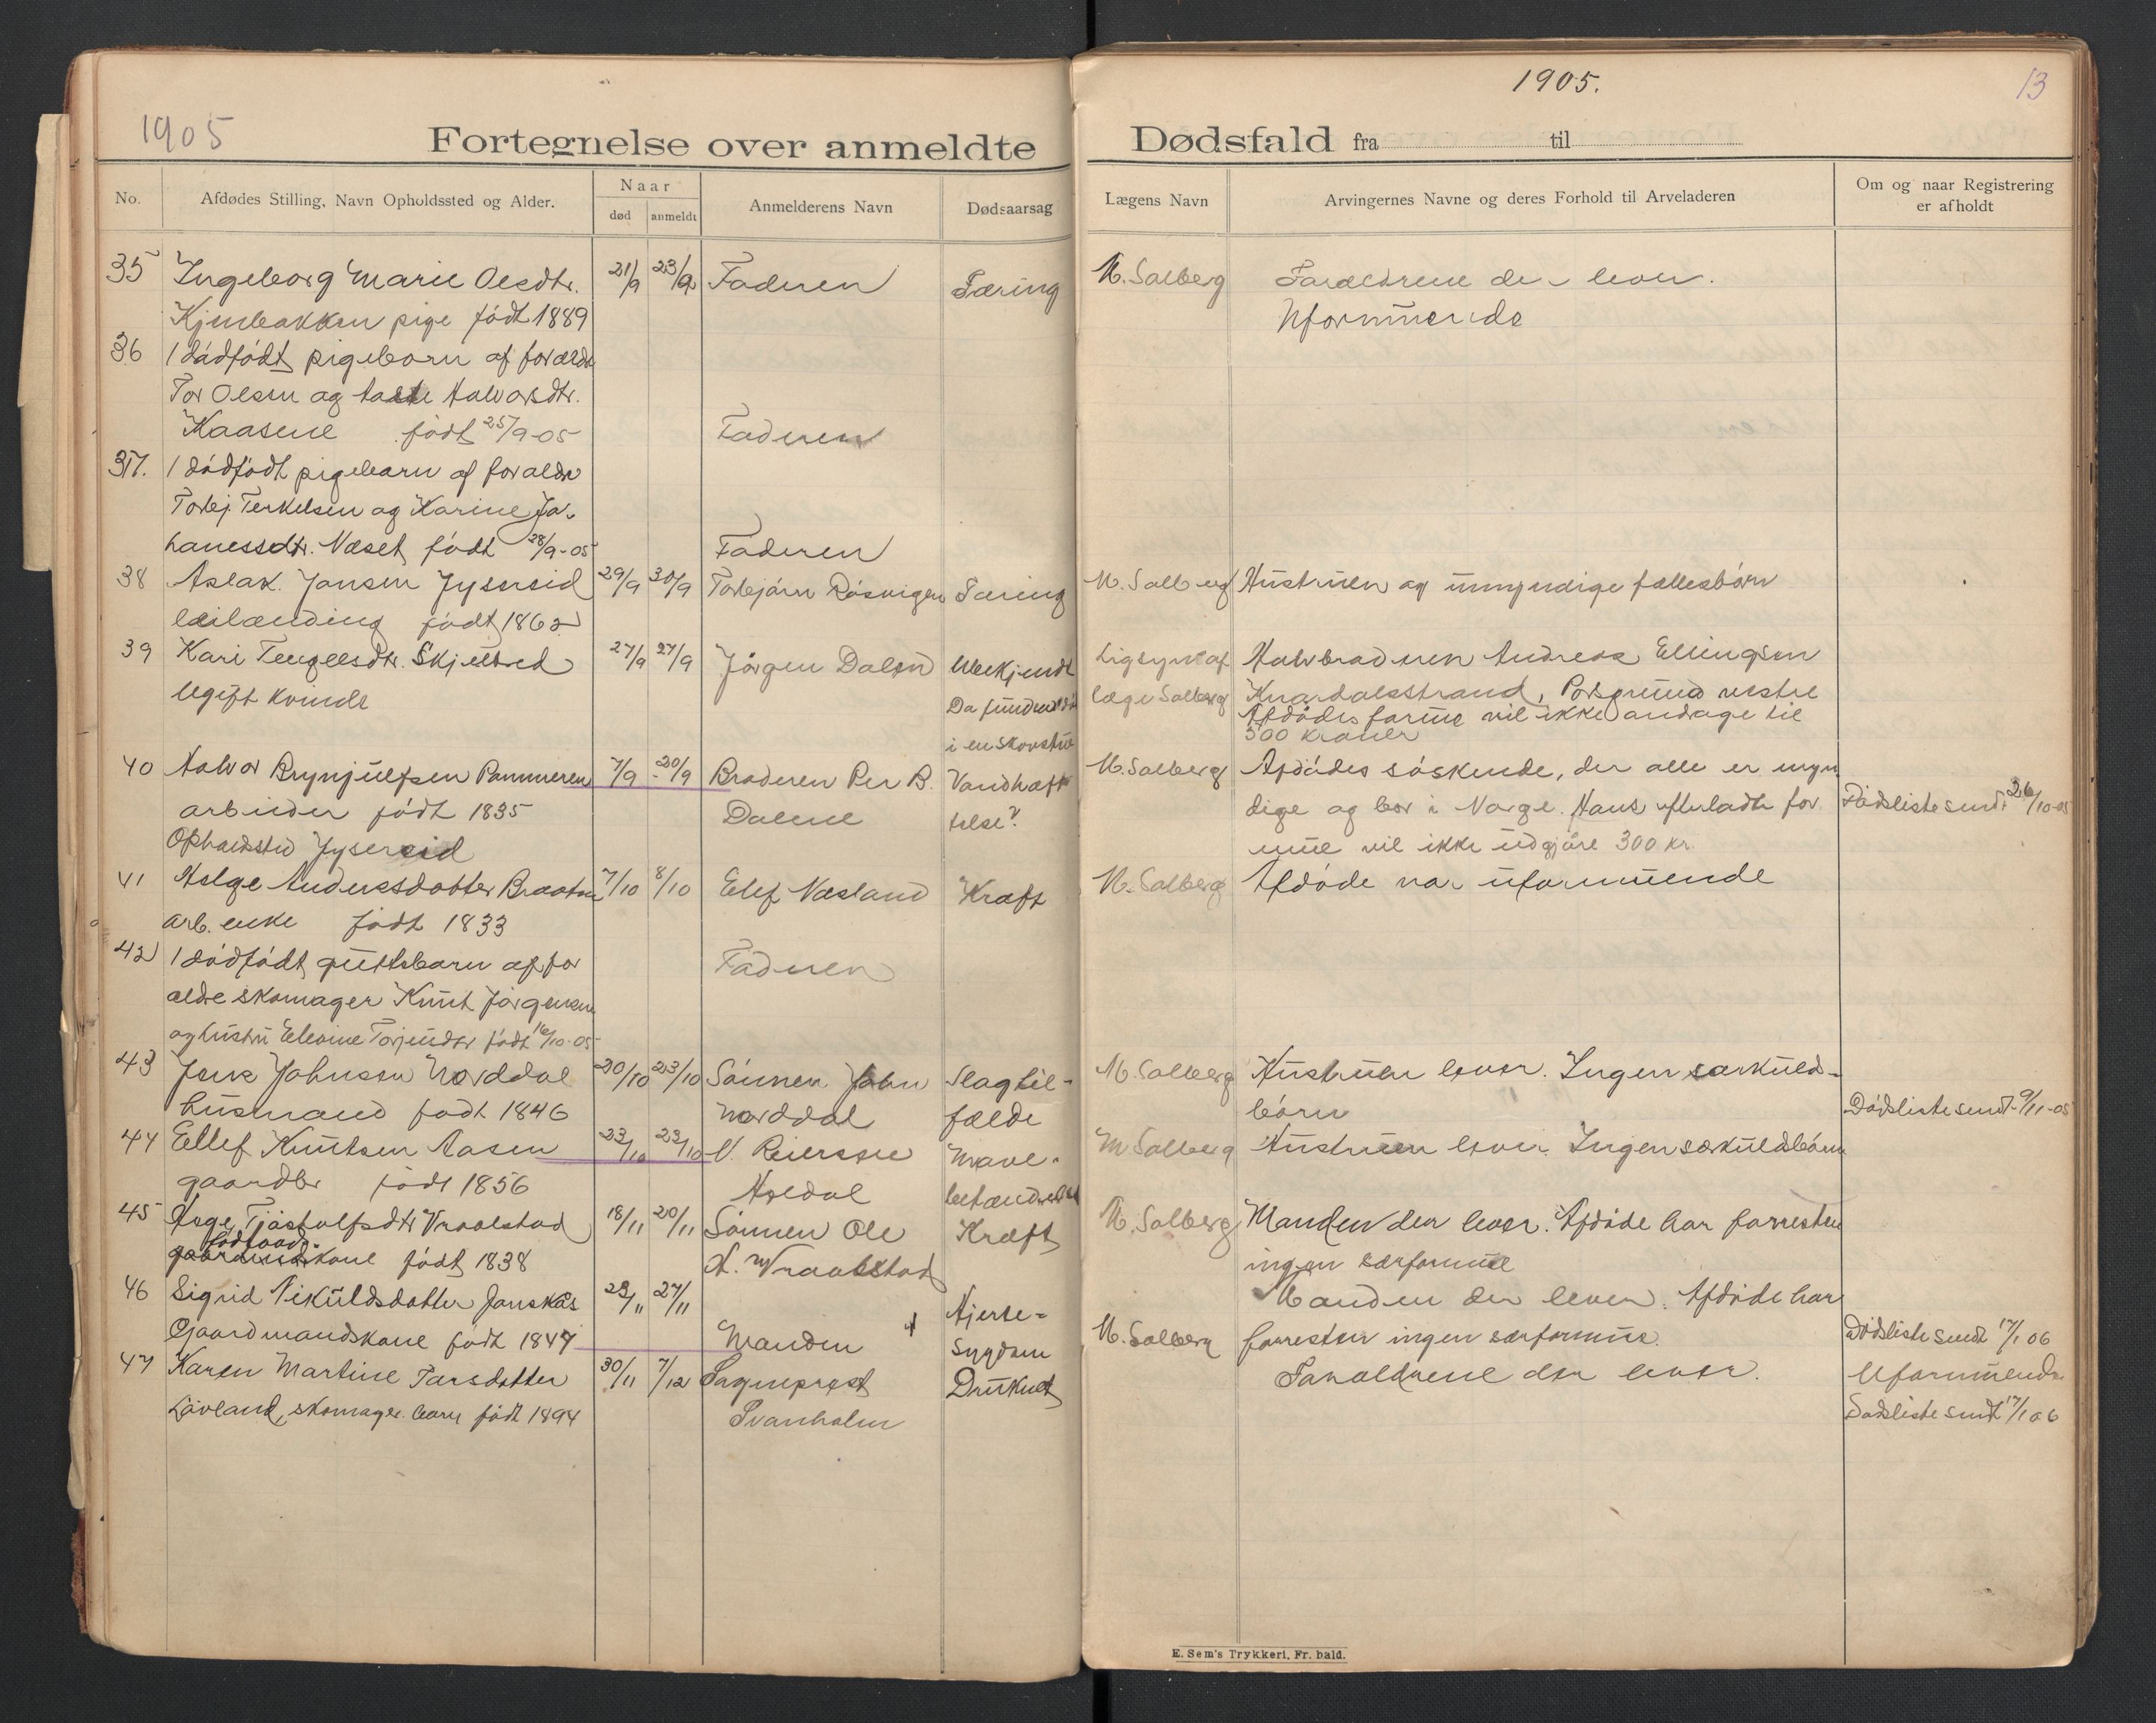 1905
Fortegnelse over anmeldte
No.
Afdødes Stilling, Navn Opholdssted og Alder.
Naar
død
anmeldt
Anmelderens Navn
Dødsaarsag
35 Ingeborg Marie Olsdtr. 21/9 23/9 Faderen Tæring
Kjenbakken pige født 1889
36 1 dødfødt pigebarn af forældr
Tor Olsen og Halvorsdtr.
Kaasene født 25/9-05 Faderen
37. 1 dødfødt pigebarn af forældre
Torbj. Terkelsen og Karine Jo-
hanessdtr. Næset født 28/9-05 Faderen
38 Aslak Jansen Jysereid 29/9 30/9 Torbjørn Røsvigen Tæring
leilænding født 1862
39 Kari Tengelsdtr. Skjelbred 27/9 27/9 Jørgen Dalen Ubekjendt
Ugift kvinde Da funden død
i en skovstue
40 Halvor Brynjulfsen Pammeren 7/9 - 20/9 Broderen Per B. Vandhæft
arbeider født 1835 Dalene telse?
Opholdsted Jysereid
41 Helge Andersdotter Braaten 7/10 8/10 Elef Næsland Kræft
arb. enke født 1833
42 1 dødfødt guttebarn af for
ældre skomager Knut Jørgensen
og hustru Elevine Torjusdtr født 16/10-05 Faderen
43 Jens Johnsen Norddal 20/10 23/10 Sønnen John Slagtil-
husmand født 1846 Norddal fælde
44 Ellef Knutsen Aasen 23/10 23/10 N. Reiersen Mave-
gaardbr født 1856 Høldal betændelse
45 Aage Tjøstolfsdtr Vraalstad 18/11 20/11 Sønnen Ole Kræft
fødraad
kone født 1838 H. Vraalstad
46 Sigrid Nikuldsdatter Jonskås 23/11 27/11 Hjerte-
Gaardmandskone født 1847 Manden sygdom
47 Karen Martine Larsdatter 30/11 7/12 Sogneprest Druknet
Løvland, skomager barn født 1894 Svanholm
1905.
13
Dødsfald fra til
Lægens Navn
Arvingernes Navne og deres Forhold til Arveladeren
Om og naar Registrering
er afholdt
M. Solberg Forældrene der lever.
Uformuende
M. Solberg Hustruen og umyndige fællesbørn
Ligsyn af Halvbroderen Andreas Ellingsen
læge Solberg Knardalsstrand, Porsgrund vestre
Afdødes formue vil ikke andrage til
300 kroner
M. Solberg Afdødes søskende, der alle er myn
dige og bor i Norge. Hans efterladte for Dødsliste sendt 26/10-05
mue vil ikke udgjøre 300 kr.
M. Solberg Afdøde var uformuende
M. Solberg Hustruen lever. Ingen særkuld-
børn Dødsliste sendt 9/11-05
M Solberg Hustruen lever. Ingen særkuldsbørn
M. Solberg Manden der lever. Afdøde har forresten
ingen særformue
Manden der lever. Afdøde har
M. Solberg forresten ingen særformue. Dødsliste sendt 17/1 06
Forældrene der lever. Uformuende
Dødsliste sendt 17/1 06
E. Sem's Trykkeri, Fr. hald.